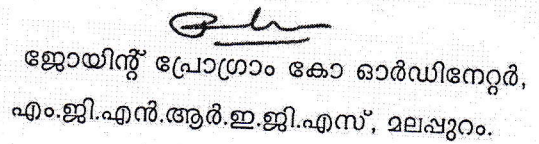 ജോയിന്റ് പ്രോഗ്രാം കോ ഓർഡിനേറ്റർ,
എം.ജി.എൻ.ആർ.ഇ.ജി.എസ്, മലപ്പുറം.